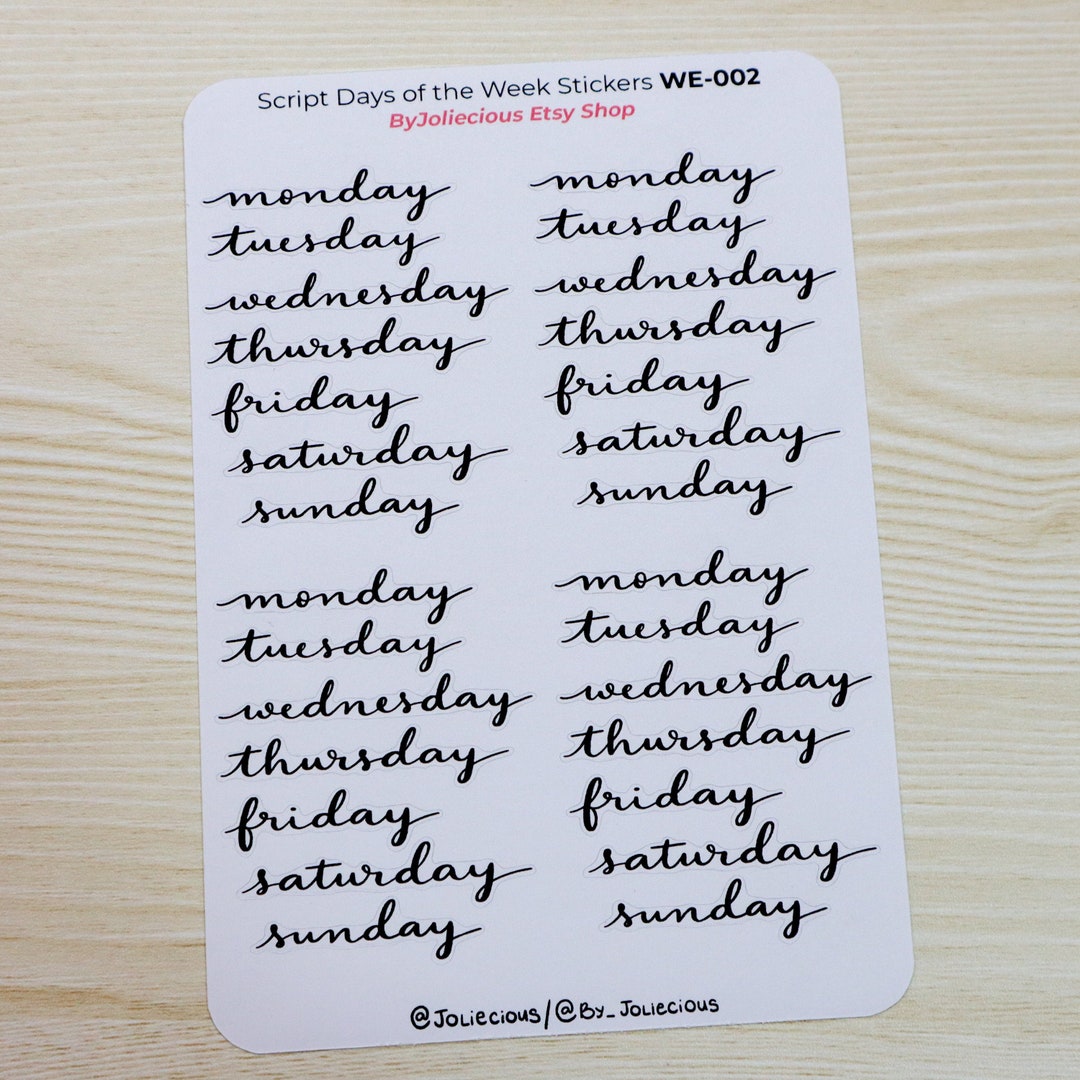 Script Days of the Week Stickers WE-002
ByJoliecious Etsy Shop
monday
tuesday
wednesday
thursday
friday
saturday
sunday
monday
tuesday
wednesday
thursday
friday
saturday
sunday
monday
tuesday
wednesday
thursday
friday
saturday
sunday
monday
tuesday
wednesday
thursday
friday
saturday
sunday
@Joliecious/@By_Joliecious